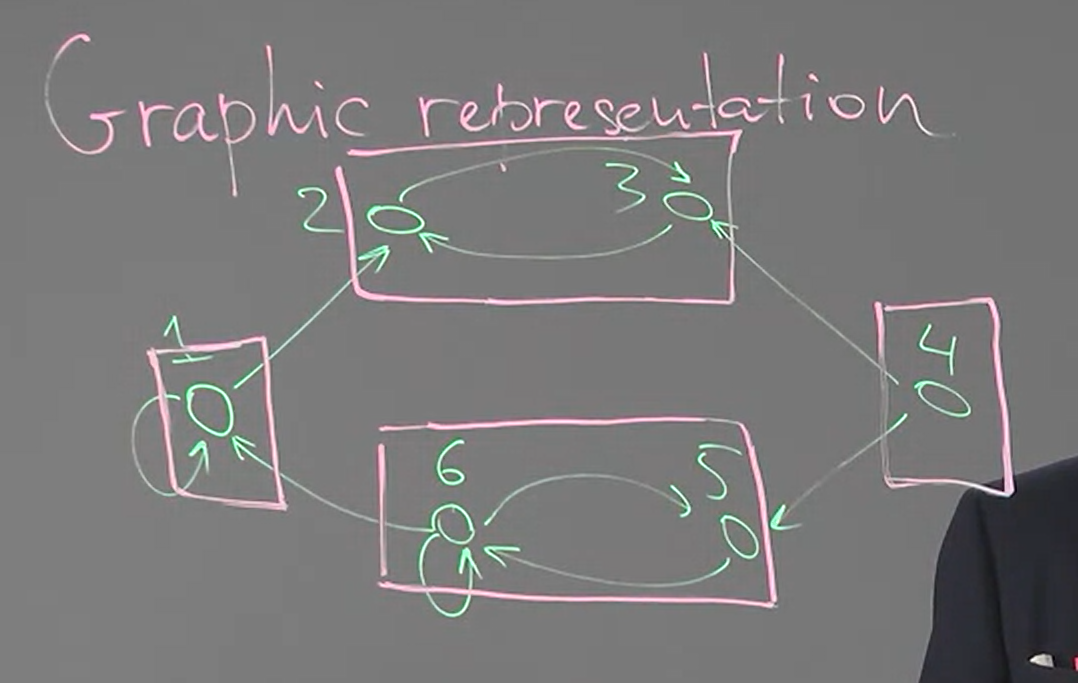 Graphic representation
2 3
1 4
6 5